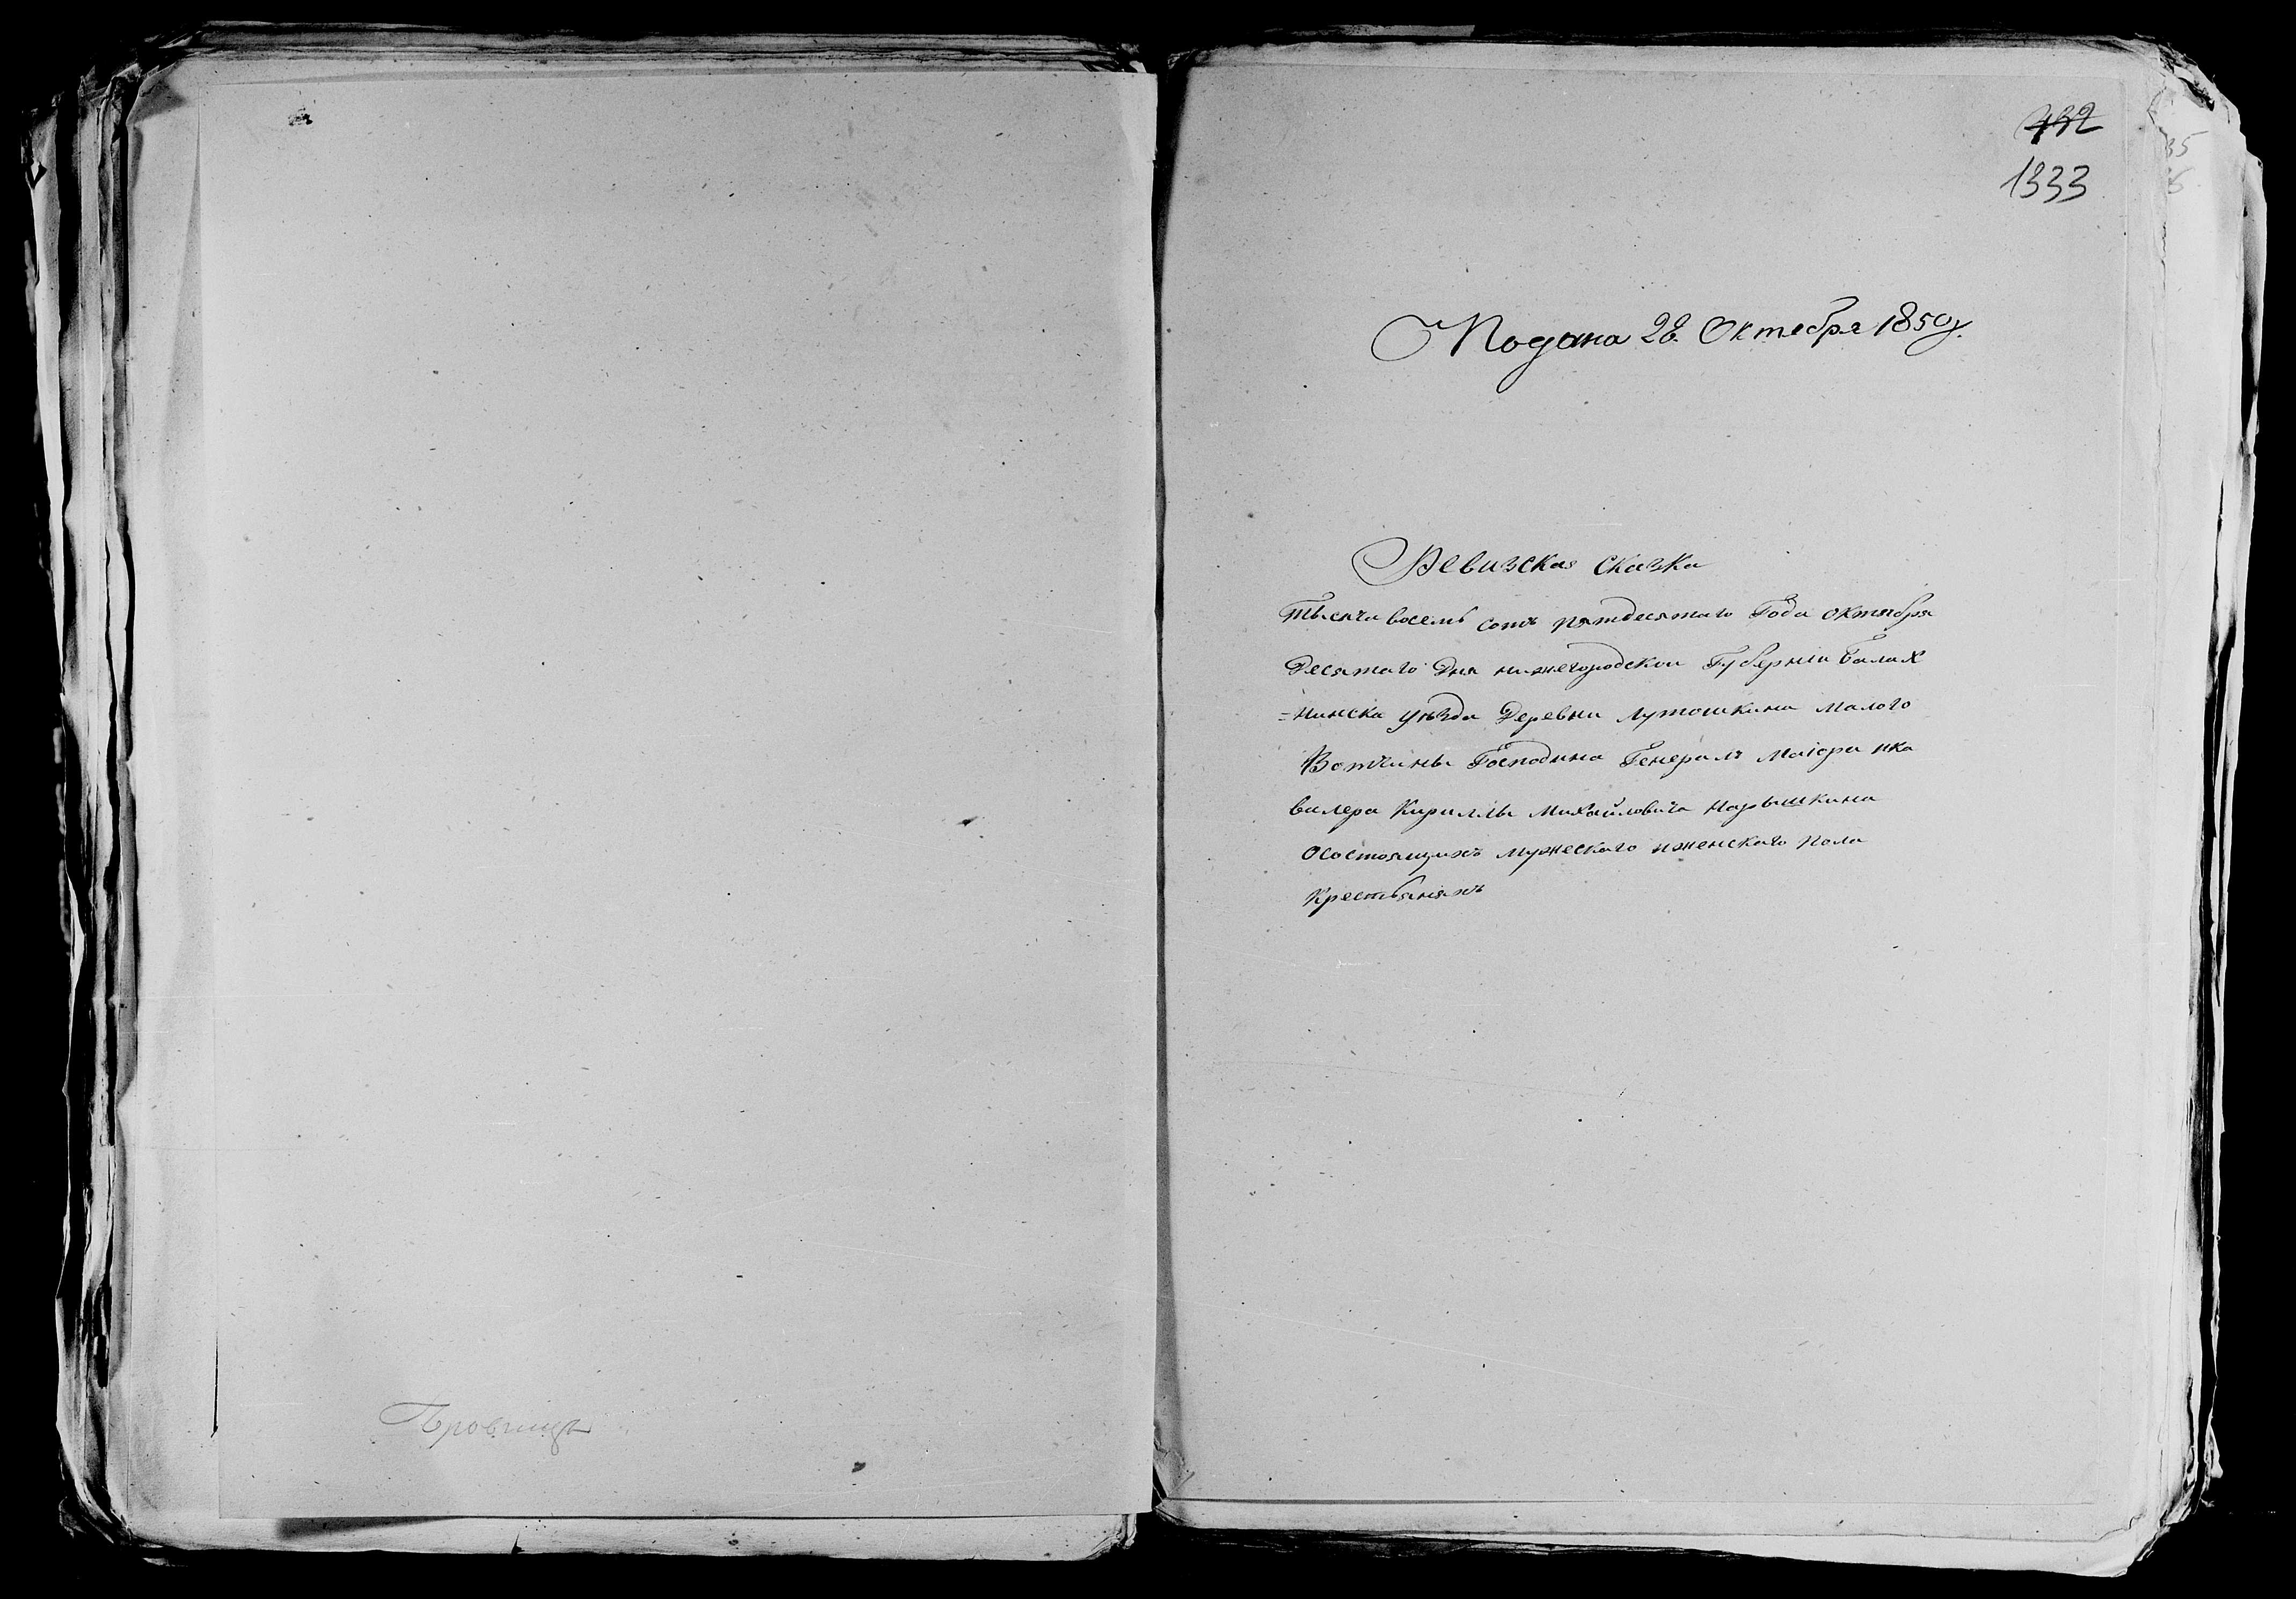 732
1333
Подана 28. Октебря 1850г.
Ревизская сказка
Тысяча восемь сотъ пятдесятаго Года октября
Десятаго Дня нижегородской Губерніи балах
=нинска уѣзда Деревни лутошкина малого
Вотчины Господина Генералъ Маіора ика
валера Кириллы Михайловича Нарышкина
осостоящихъ мужескаго иженскаго пола
крестьянахъ